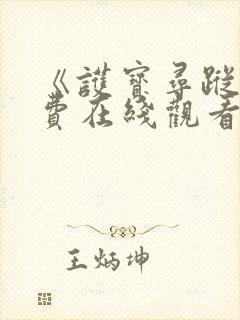 《護寶尋蹤
費在綫觀看
王炳坤